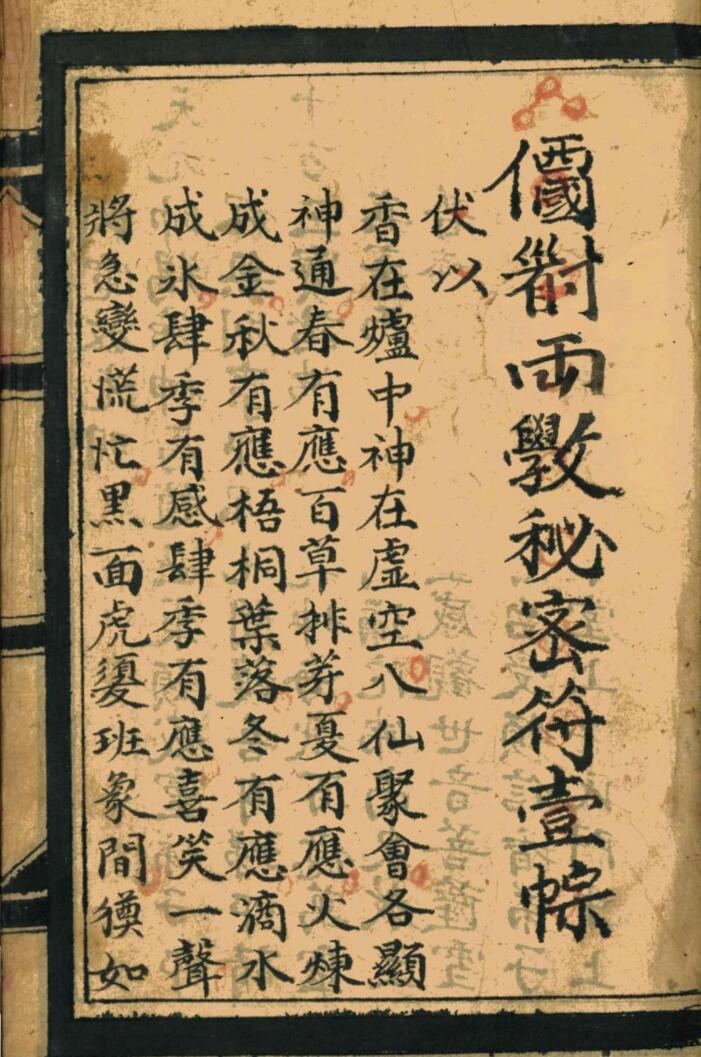 両斆秘密符壹
伏以
香在爐中神在虛空八仙聚會各顯
神通春有應百草排芽夏有應火煉
成金秋有應梧桐葉落冬有應滴水
成氷肆季有感肆季有應喜笑一聲
將急變慌忙黑面虎班象間獏如